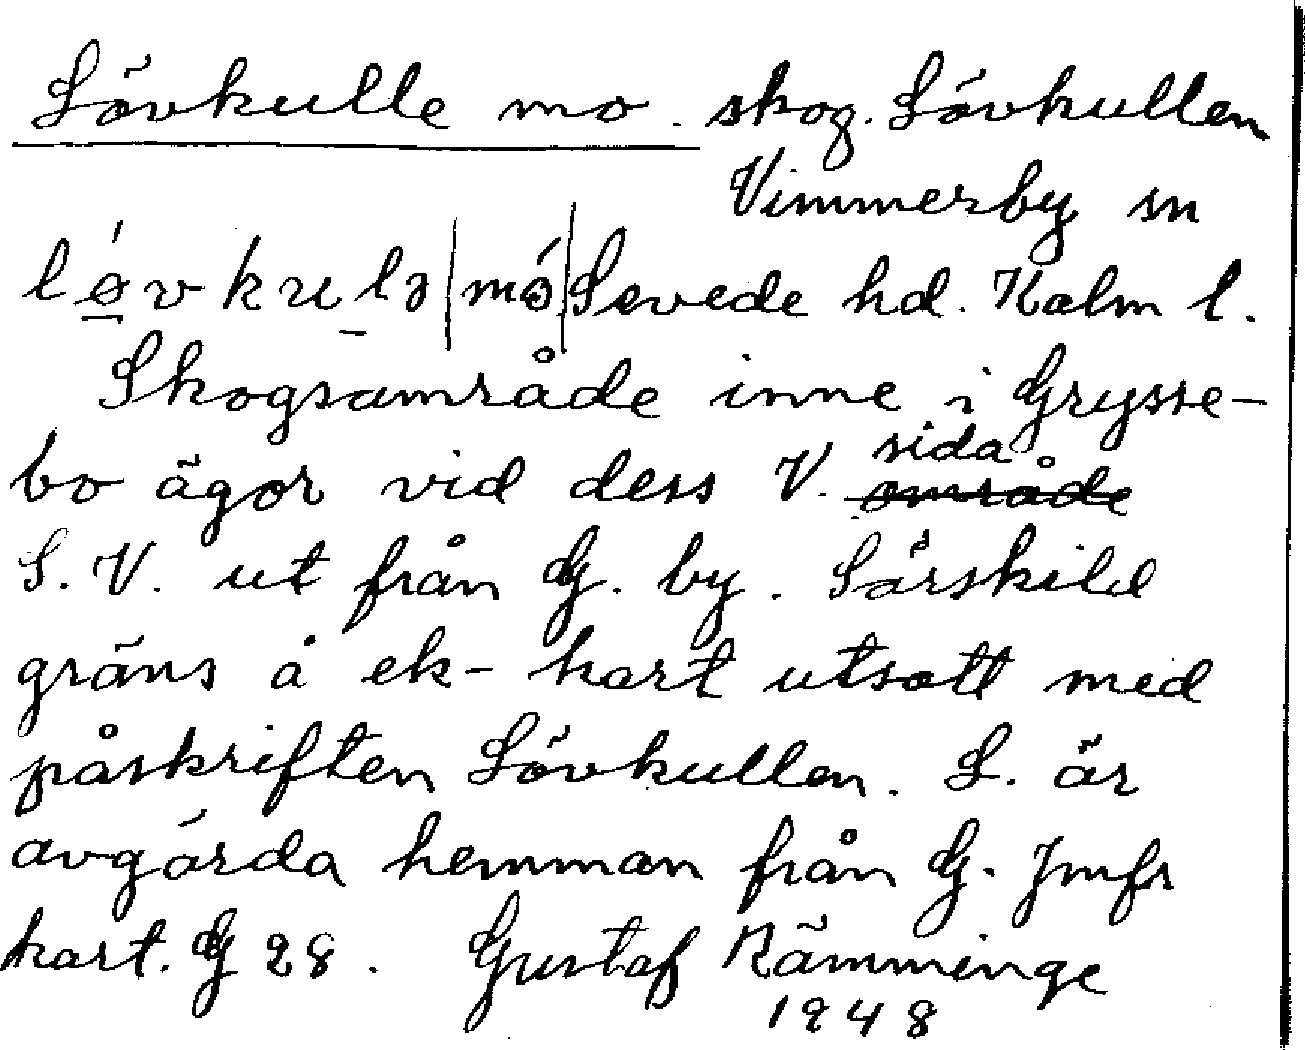 Lövkulle mo. skog. Lövkullen
Vimmerby sn
lǿvkulə|mó|Sevede hd. Kalm l.
Skogsområde inne i Grysse-
bo ägor vid dess V. sida område
S. V. ut från G. by. Särskild
gräns å ek-kart utsatt med
påskriften Lövkullen. L. är
avgärda hemman från G. Jmfr
kart. G 28. Gustaf Rämminge
1948